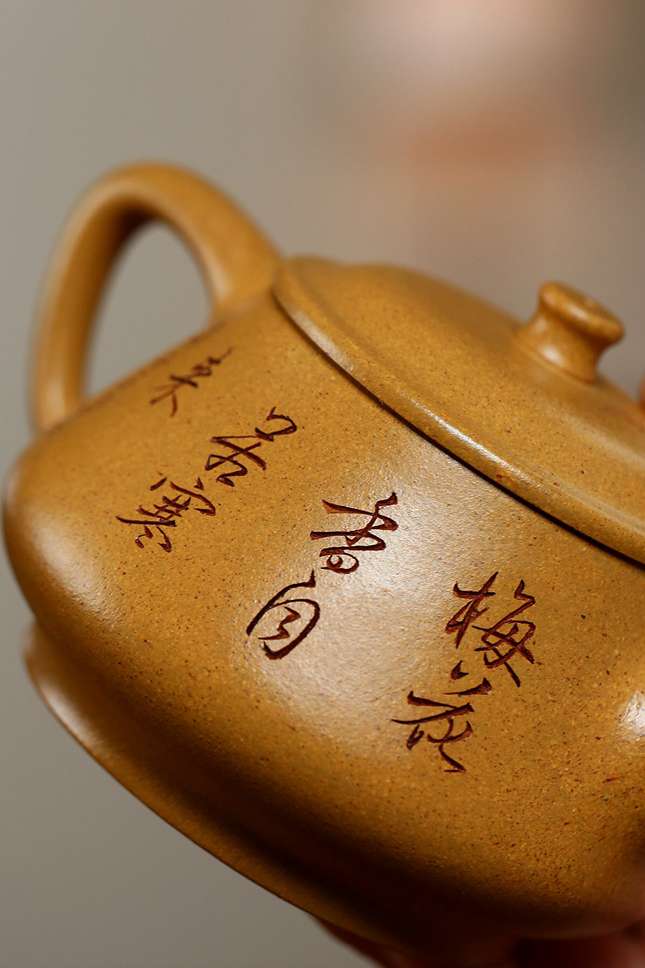 梅花
香自
苦寒
来